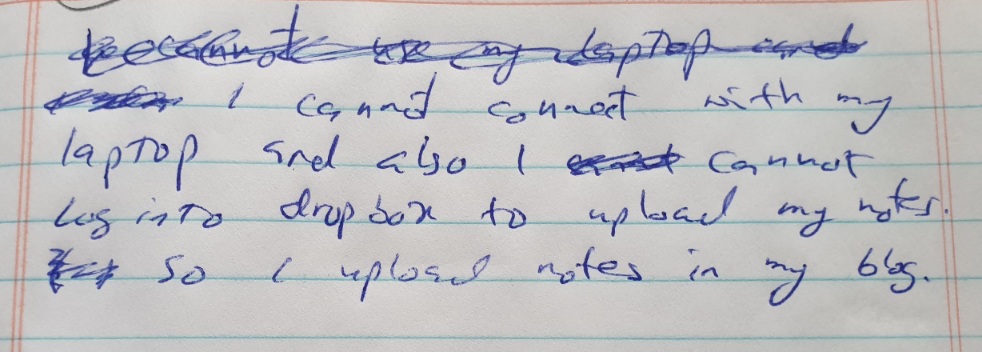 I cannot use my laptop and
I cannot connect with my
laptop and also I cannot
Log into dropbox to upload my notes.
So I upload notes in my blog.